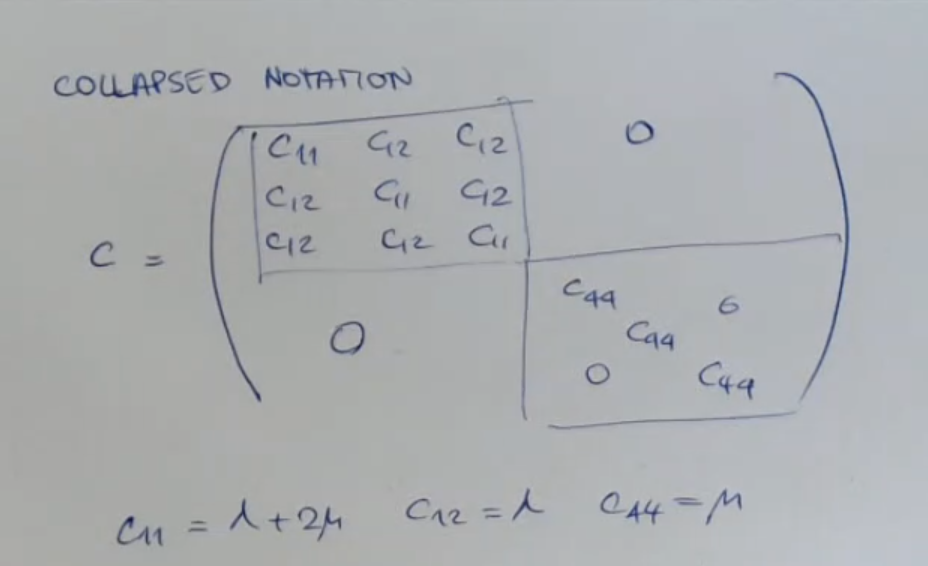 COLLAPSED NOTATION
C11 C12 C12 0
C12 C11 C12
C12 C12 C11
C =
C44 0
0 C44
0 C44
C11 = λ+2μ C12 = λ C44 = μ